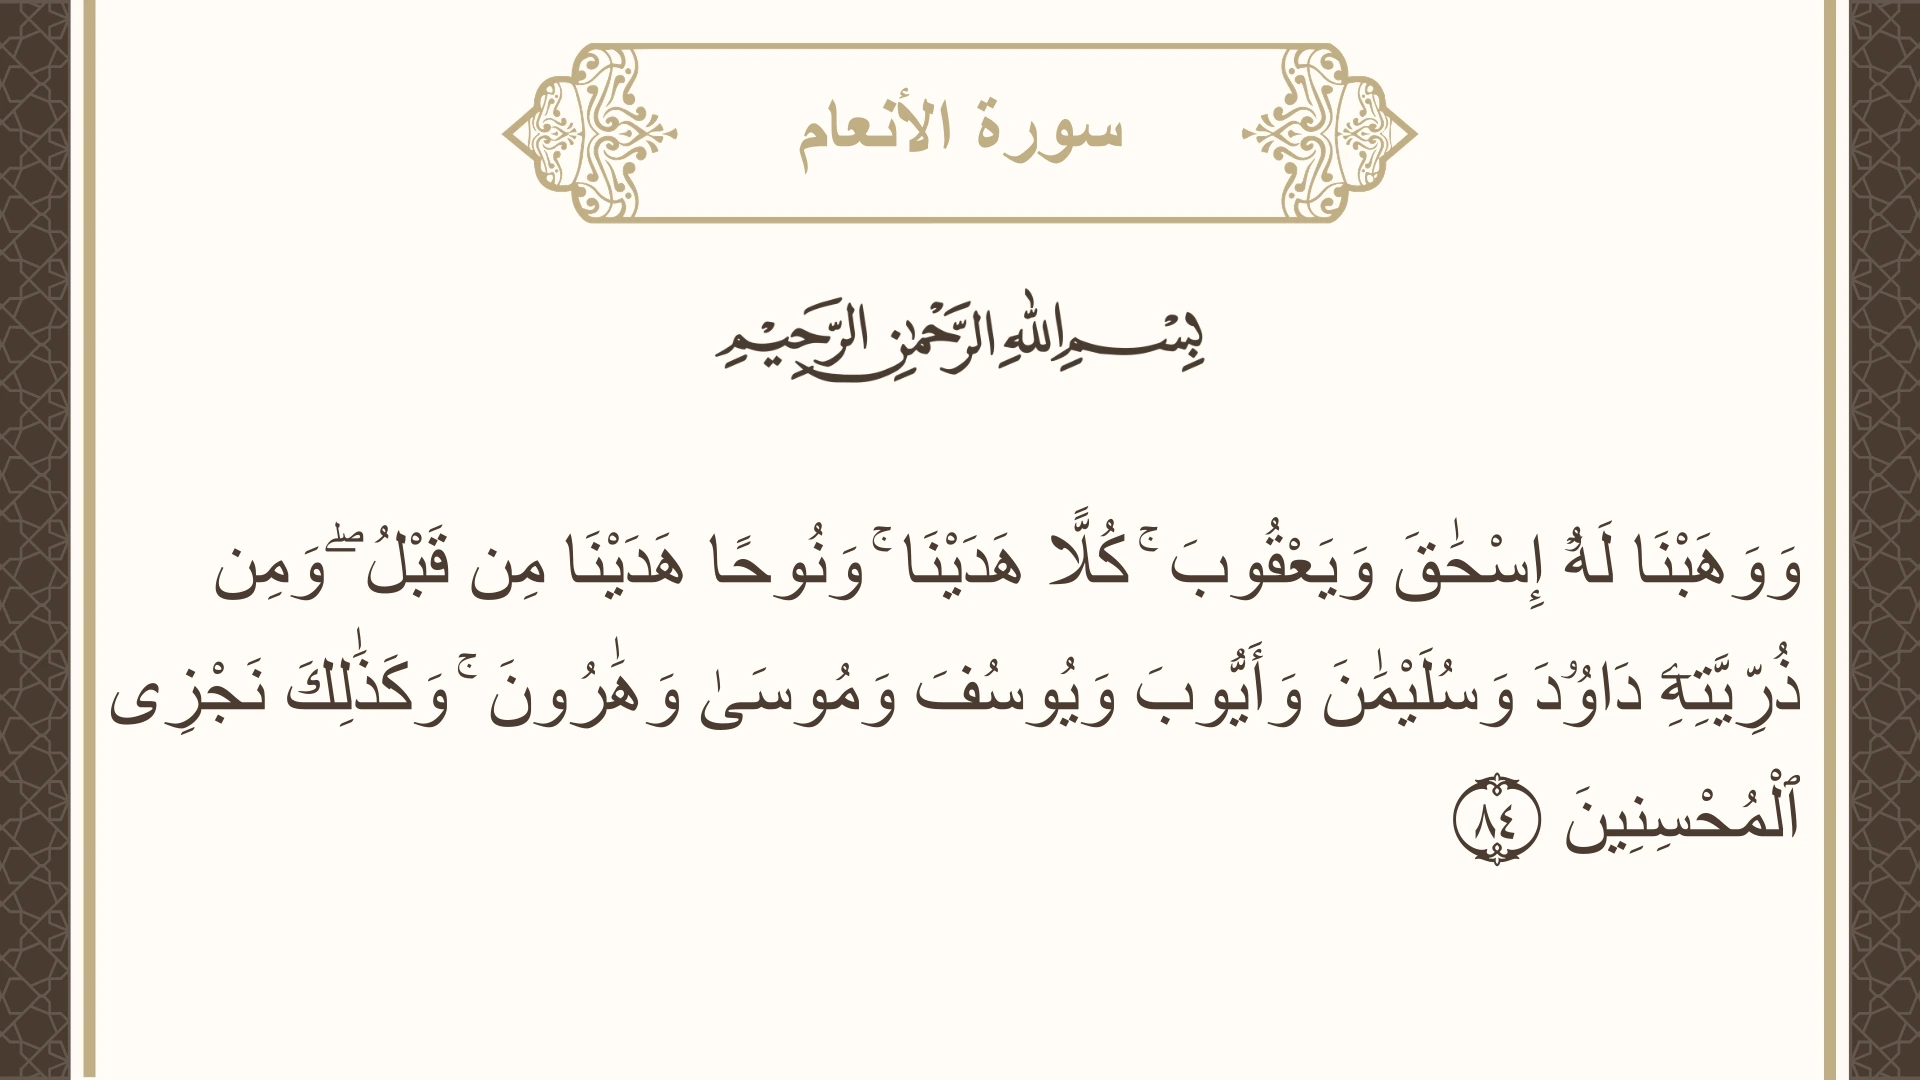 سورة الأنعام
بِسْمِ اللهِ الرَّحْمٰنِ الرَّحِيْمِ
وَوَهَبْنَا لَهُۥٓ إِسْحَٰقَ وَيَعْقُوبَ ۚ كُلًّا هَدَيْنَا ۚ وَنُوحًا هَدَيْنَا مِن قَبْلُ ۖ وَمِن
ذُرِّيَّتِهِۦ دَاوُۥدَ وَسُلَيْمَٰنَ وَأَيُّوبَ وَيُوسُفَ وَمُوسَىٰ وَهَٰرُونَ ۚ وَكَذَٰلِكَ نَجْزِى
ٱلْمُحْسِنِينَ ٨٤